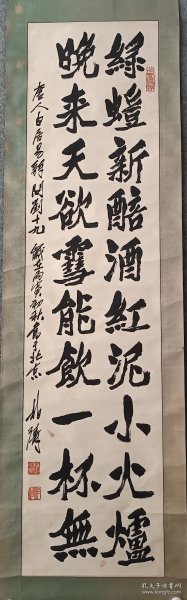 綠螘新醅酒紅泥小火爐
晚来天欲雪能飲一杯無
唐人白居易詩問劉十九 歲在丙寅初秋書於北京
孔夫子旧书网